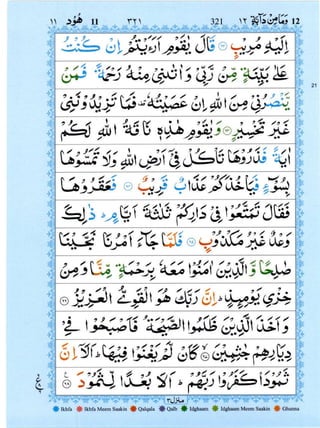 ١١ هُوْد 11 ٣٢١ 321 ١٢ وَمَا مِنْ دَآبَّةٍ 12
اِلَيْهِ مُرِيْبٍ قَالَ يٰقَوْمِ اَرَءَيْتُمْ اِنْ كُنْتُ
عَلٰى بَيِّنَةٍ مِّنْ رَّبِّيْ وَاٰتٰىنِيْ مِنْهُ رَحْمَةً فَمَنْ
يَّنْصُرُنِيْ مِنَ اللّٰهِ اِنْ عَصَيْتُهٗ فَمَا تَزِيْدُوْنَنِيْ
21
غَيْرَ تَخْسِيْرٍ وَيٰقَوْمِ هٰذِهٖ نَاقَةُ اللّٰهِ لَكُمْ
اٰيَةً فَذَرُوْهَا تَأْكُلْ فِيْٓ اَرْضِ اللّٰهِ وَلَا تَمَسُّوْهَا
بِسُوْٓءٍ فَيَأْخُذَكُمْ عَذَابٌ قَرِيْبٌ فَعَقَرُوْهَا
فَقَالَ تَمَتَّعُوْا فِيْ دَارِكُمْ ثَلٰثَةَ اَيَّامٍ ذٰلِكَ
وَعْدٌ غَيْرُ مَكْذُوْبٍ فَلَمَّا جَآءَ اَمْرُنَا نَجَّيْنَا
صٰلِحًا وَّالَّذِيْنَ اٰمَنُوْا مَعَهٗ بِرَحْمَةٍ مِّنَّا وَمِنْ
خِزْيِ يَوْمِئِذٍ اِنَّ رَبَّكَ هُوَ الْقَوِيُّ الْعَزِيْزُ ٦٦
وَاَخَذَ الَّذِيْنَ ظَلَمُوا الصَّيْحَةُ فَاَصْبَحُوْا فِيْ
دِيَارِهِمْ جٰثِمِيْنَ كَاَنْ لَّمْ يَغْنَوْا فِيْهَا اَلَآ اِنَّ
ثَمُوْدَا۟ كَفَرُوْا رَبَّهُمْ اَلَا بُعْدًا لِّثَمُوْدَ ٦٨
منزل ٣
Ikhfa Ikhfa Meem Saakin Qalqala Qalb Idghaam Idghaam Meem Saakin Ghunna